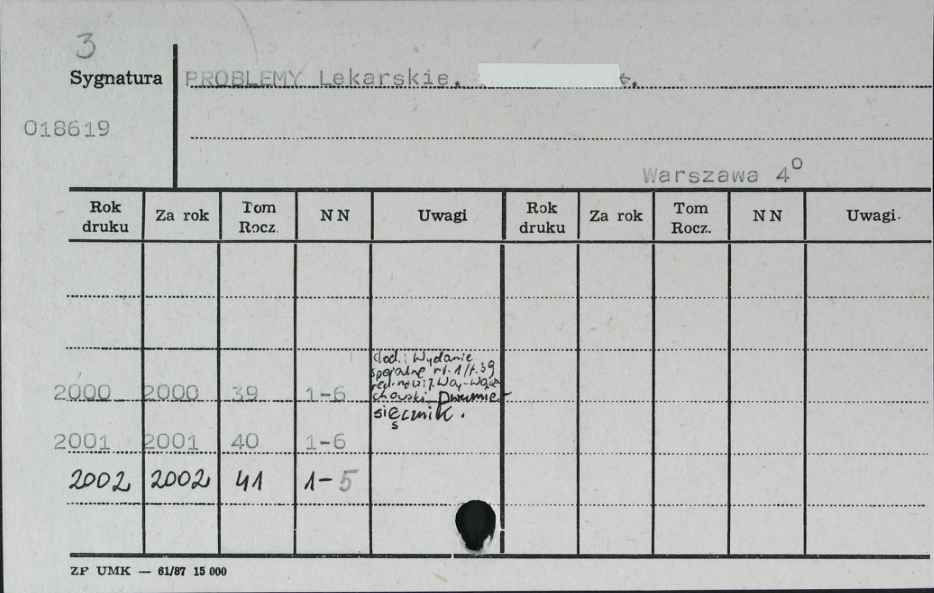 3
Sygnatura PROBLEMY Lekarskie. t.
018619
Warszawa 4°
Rok druku Za rok Tom Rocz. N N Uwagi Rok druku Za rok Tom Rocz. N N Uwagi
dod: Wydanie
specjalne nr. 1/t. 39
2000 2000 39 1-6
chowski Dwumie-
sięcznik.
2001 2001 40 1-6
2002 2002 41 1-5
ZP UMK — 61/87 15 000